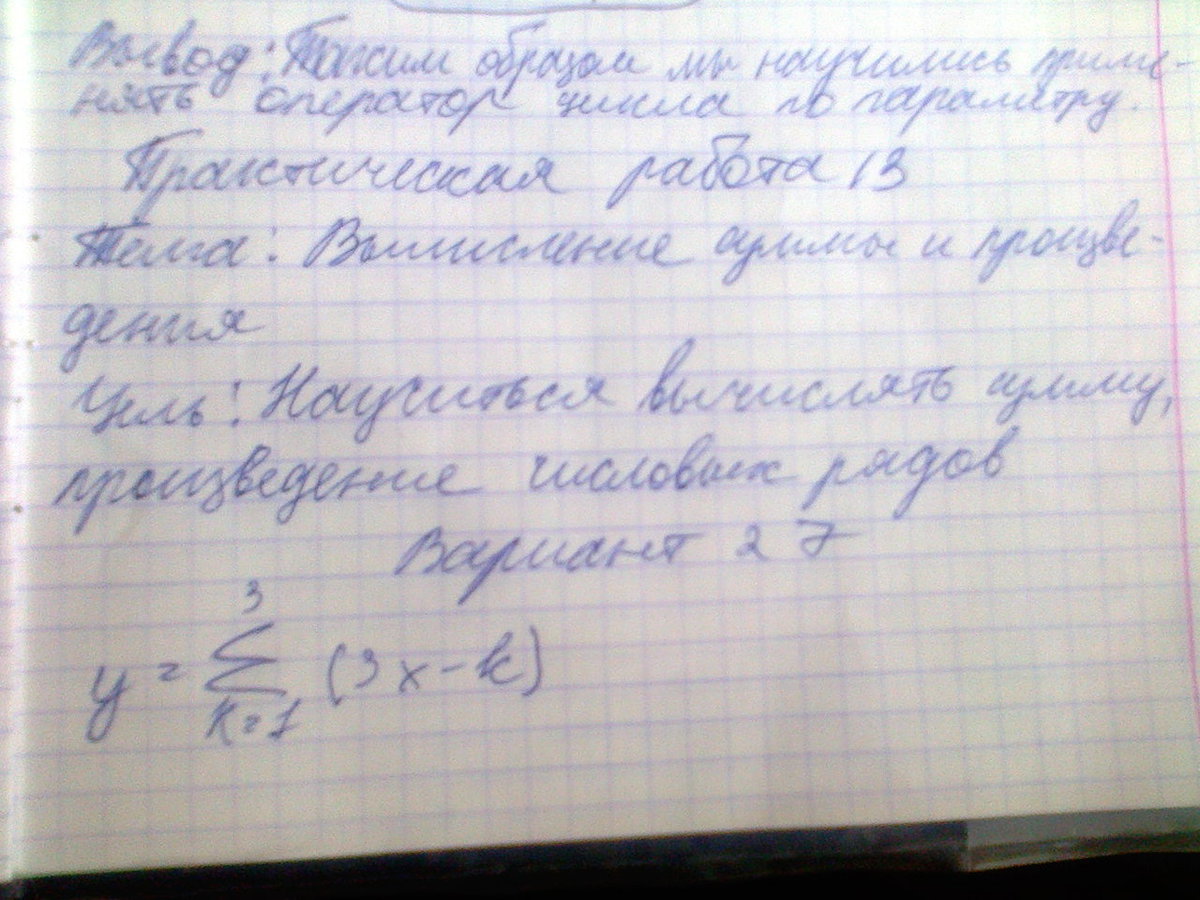 Вывод: Таким образом мы научились приме-
нять оператор цикла по параметру.
Практическая работа 13
Тема: Вычисление суммы и произве-
дения
Цель: Научиться вычислять сумму,
произведение числовых рядов
Вариант 27
3
y = ∑ (3x - k)
k=1